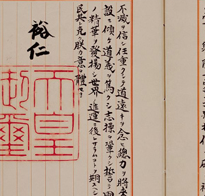 不滅ヲ信シ任重クシテ道遠キヲ念ヒ總力ヲ將來
設ニ傾ケ道義ヲ篤クシ志操ヲ鞏クシ誓テ國
ノ精華ヲ發揚シ世界ノ進運ニ後レサラムコトヲ期ス
民其レ克ク朕カ意ヲ體セヨ
裕仁
天皇
御璽